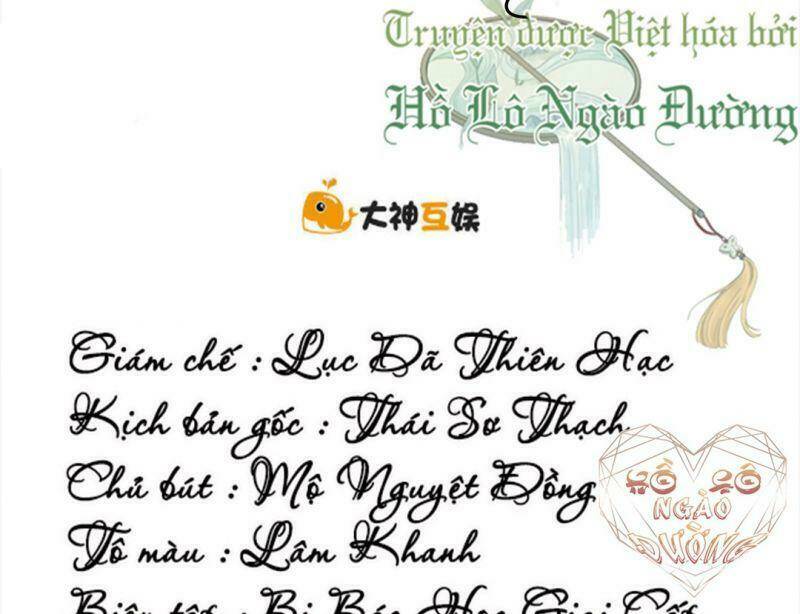 Truyện được Việt hóa bởi
Hồ Lô Ngào Đường
大神互娱
Giám chế : Lục Dã Thiên Hạc
Kịch bản gốc : Thái Sơ Thạch
Chủ bút : Mộ Nguyệt Đồng
HỒ LÔ
NGÀO
ĐƯỜNG
Tô màu : Lâm Khanh
Biên tập : Bị Bác Học Giai Cấp